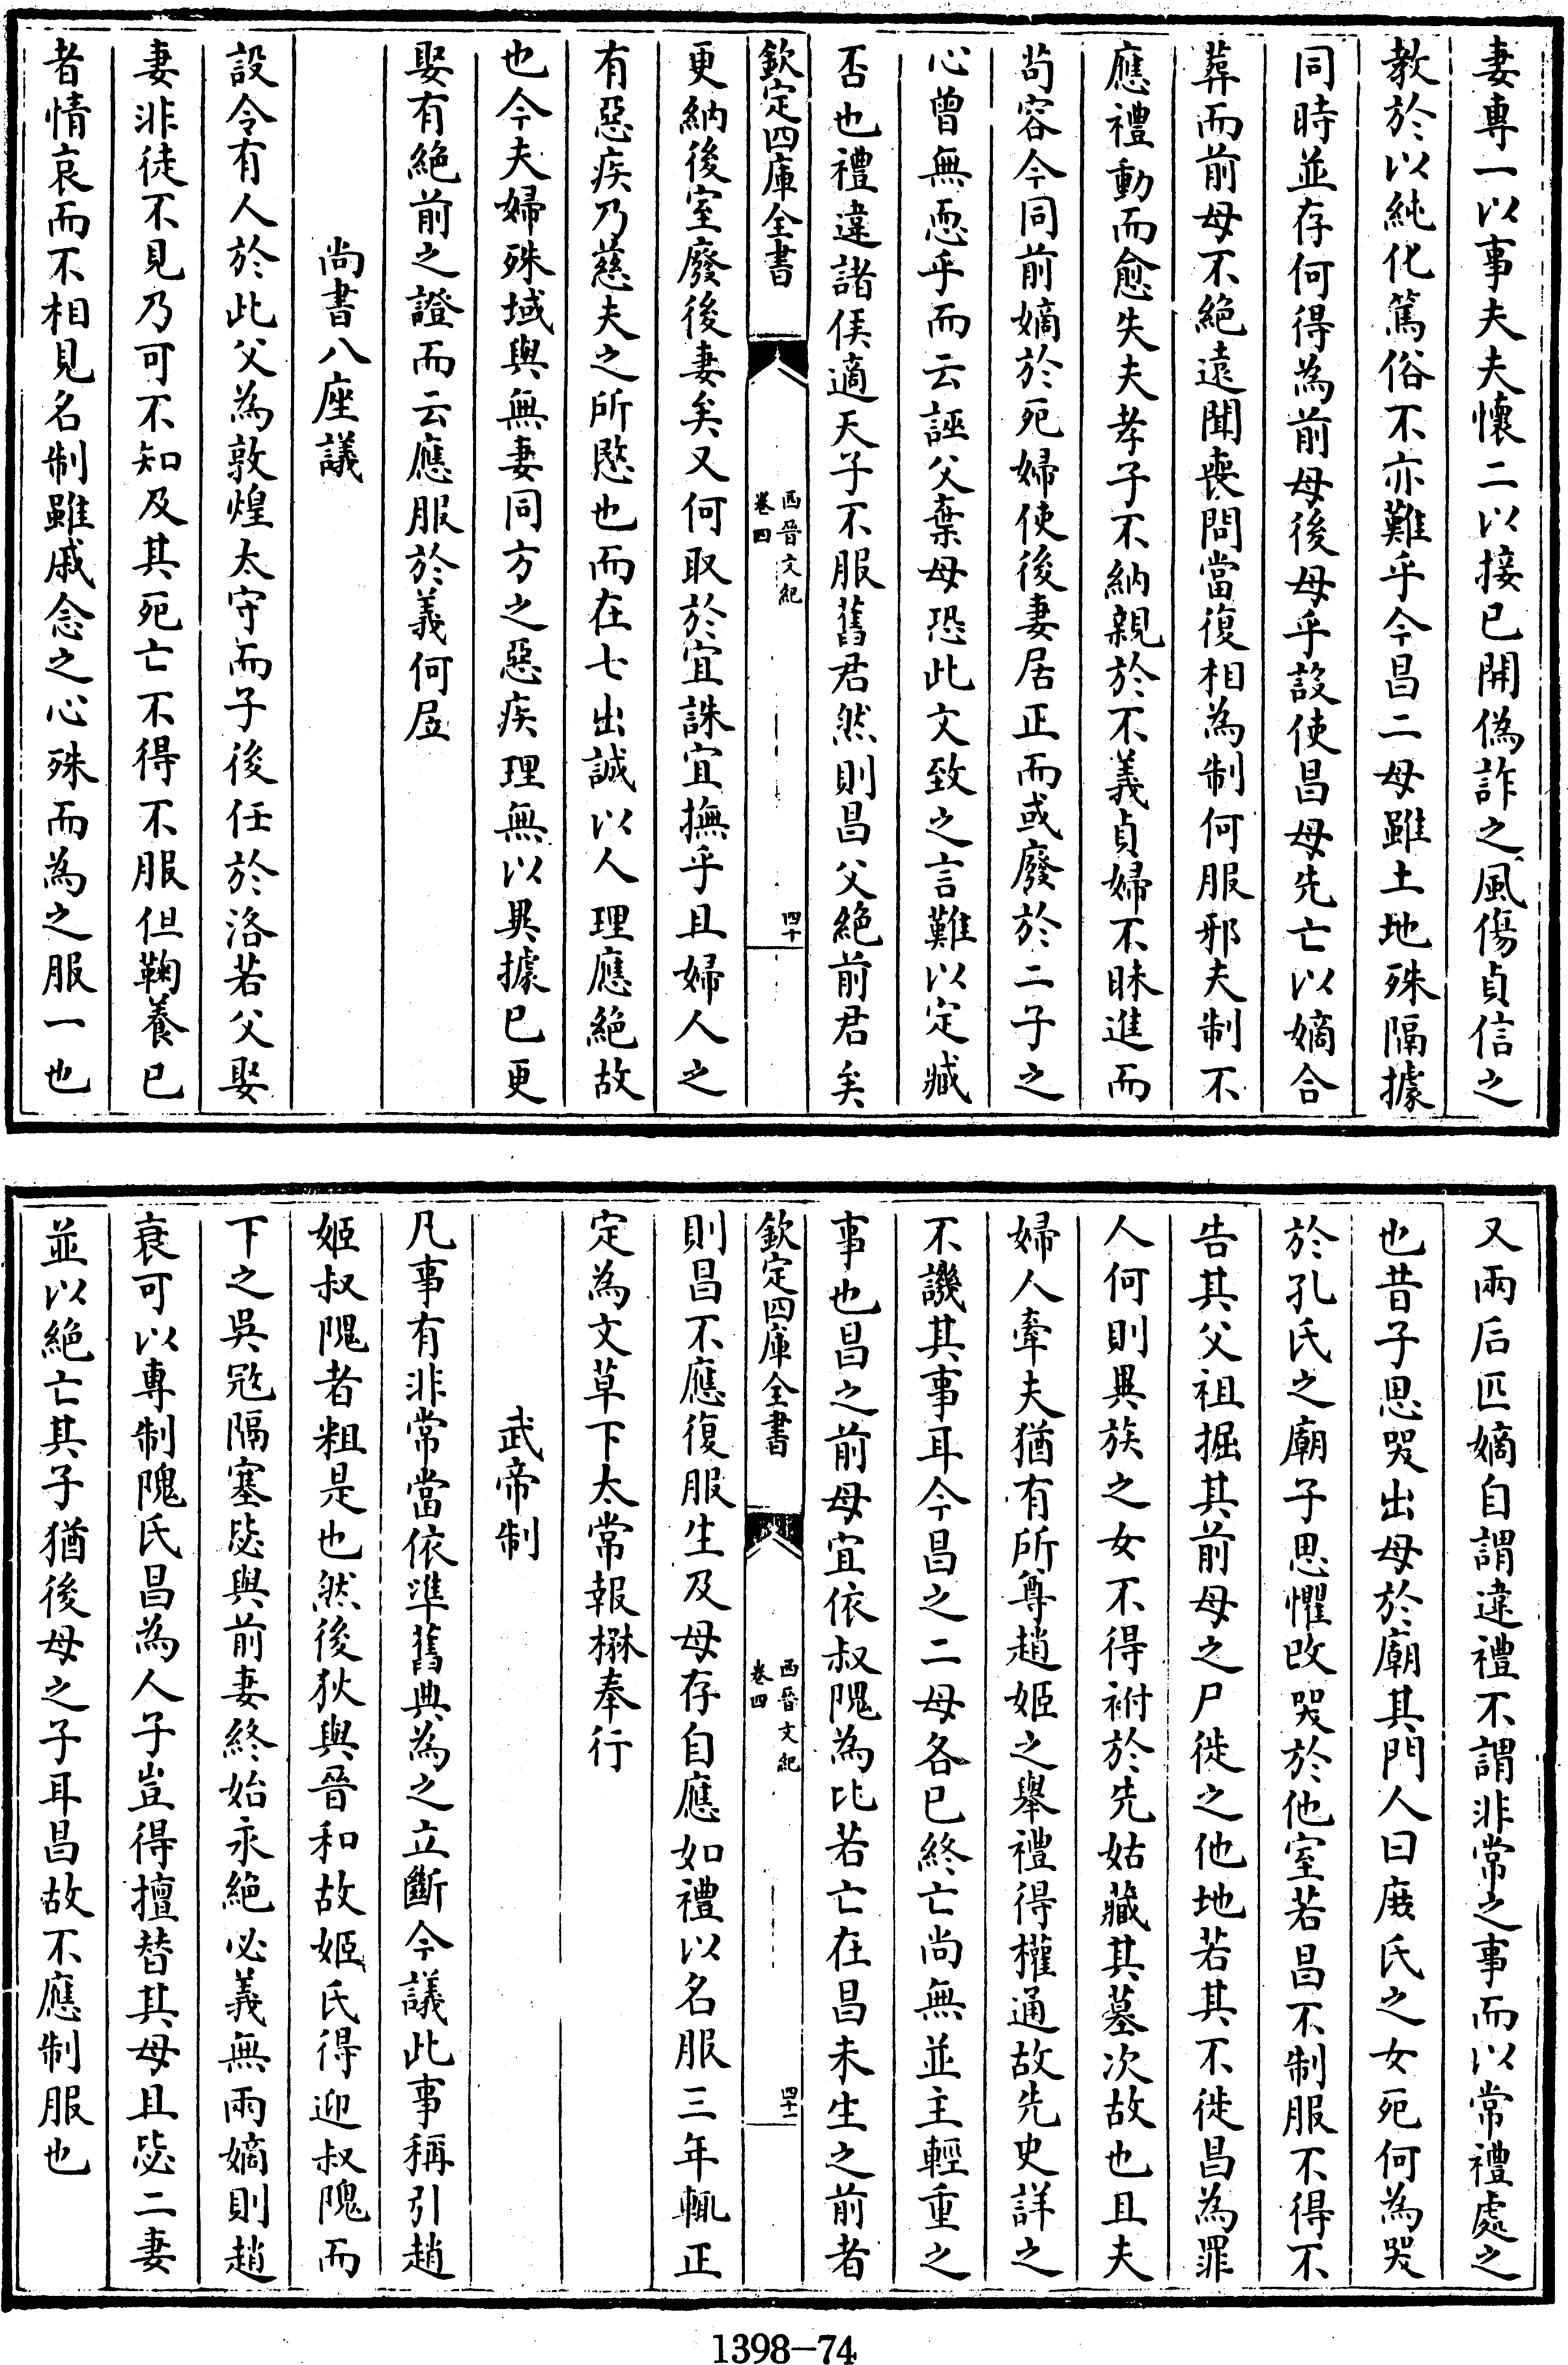 妻專一以事夫夫懷二以接已開偽詐之風傷貞信之
教於以純化篤俗不亦難乎今昌二母雖土地殊隔據
同時並存何得為前母後母乎設使昌母先亡以嫡合
葬而前母不絕遠聞喪問當復相為制何服邪夫制不
應禮動而愈失夫孝子不納親於不義貞婦不昧進而
苟容今同前嫡於死婦使後妻居正而或廢於二子之
心曾無恧乎而云誣父棄母恐此文致之言難以定臧
否也禮違諸侯適天子不服舊君然則昌父絕前君矣
欽定四庫全書
西晉文紀
卷四
四十
更納後室廢後妻矣又何取於宜誅宜撫乎且婦人之
有惡疾乃慈夫之所愍也而在七出誠以人理應絕故
也今夫婦殊域與無妻同方之惡疾理無以異據已更
娶有絕前之證而云應服於義何居
尚書八座議
設令有人於此父為敦煌太守而子後任於洛若父娶
妻非徒不見乃可不知及其死亡不得不服但鞠養已
者情哀而不相見名制雖戚念之心殊而為之服一也
又兩后匹嫡自謂違禮不謂非常之事而以常禮處之
也昔子思哭出母於廟其門人曰庶氏之女死何為哭
於孔氏之廟子思懼改哭於他室若昌不制服不得不
告其父祖掘其前母之尸徙之他地若其不徙昌為罪
人何則異族之女不得祔於先姑藏其墓次故也且夫
婦人牽夫猶有所尊趙姬之舉禮得權通故先史詳之
不譏其事耳今昌之二母各已終亡尚無並主輕重之
事也昌之前母宜依叔隗為比若亡在昌未生之前者
欽定四庫全書
西晉文紀
卷四
四十一
則昌不應復服生及母存自應如禮以名服三年輒正
定為文草下太常報楙奉行
武帝制
凡事有非常當依準舊典為之立斷今議此事稱引趙
姬叔隗者粗是也然後狄與晉和故姬氏得迎叔隗而
下之吳寇隔塞毖與前妻終始永絕必義無兩嫡則趙
衰可以專制隗氏昌為人子豈得擅替其母且毖二妻
並以絕亡其子猶後母之子耳昌故不應制服也
1398-74